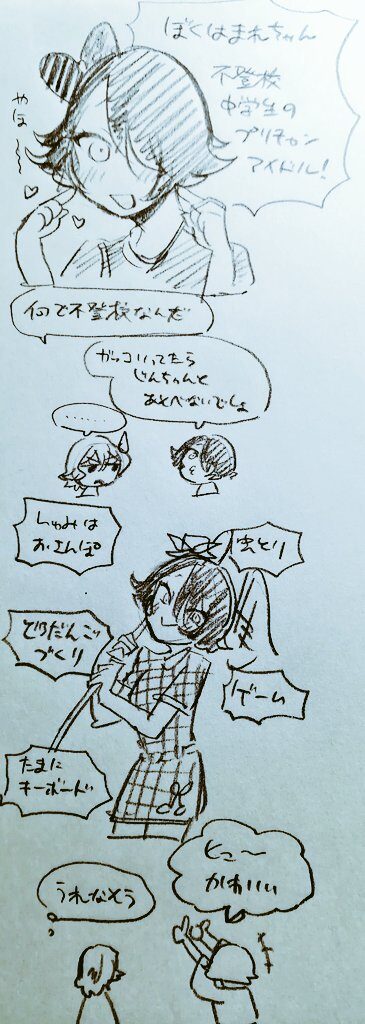 ぼくはまれちゃん
不登校
中学生の
プリチャン
アイドル!
やほ~~
何で不登校なんだ
ガッコいってたら
じんちゃんと
あそべないでしょ
……
しゅみは
おさんぽ
虫とり
どろだんご
づくり
ゲーム
たまに
キーボード
ヒュ~~
かわいい
うれなそう